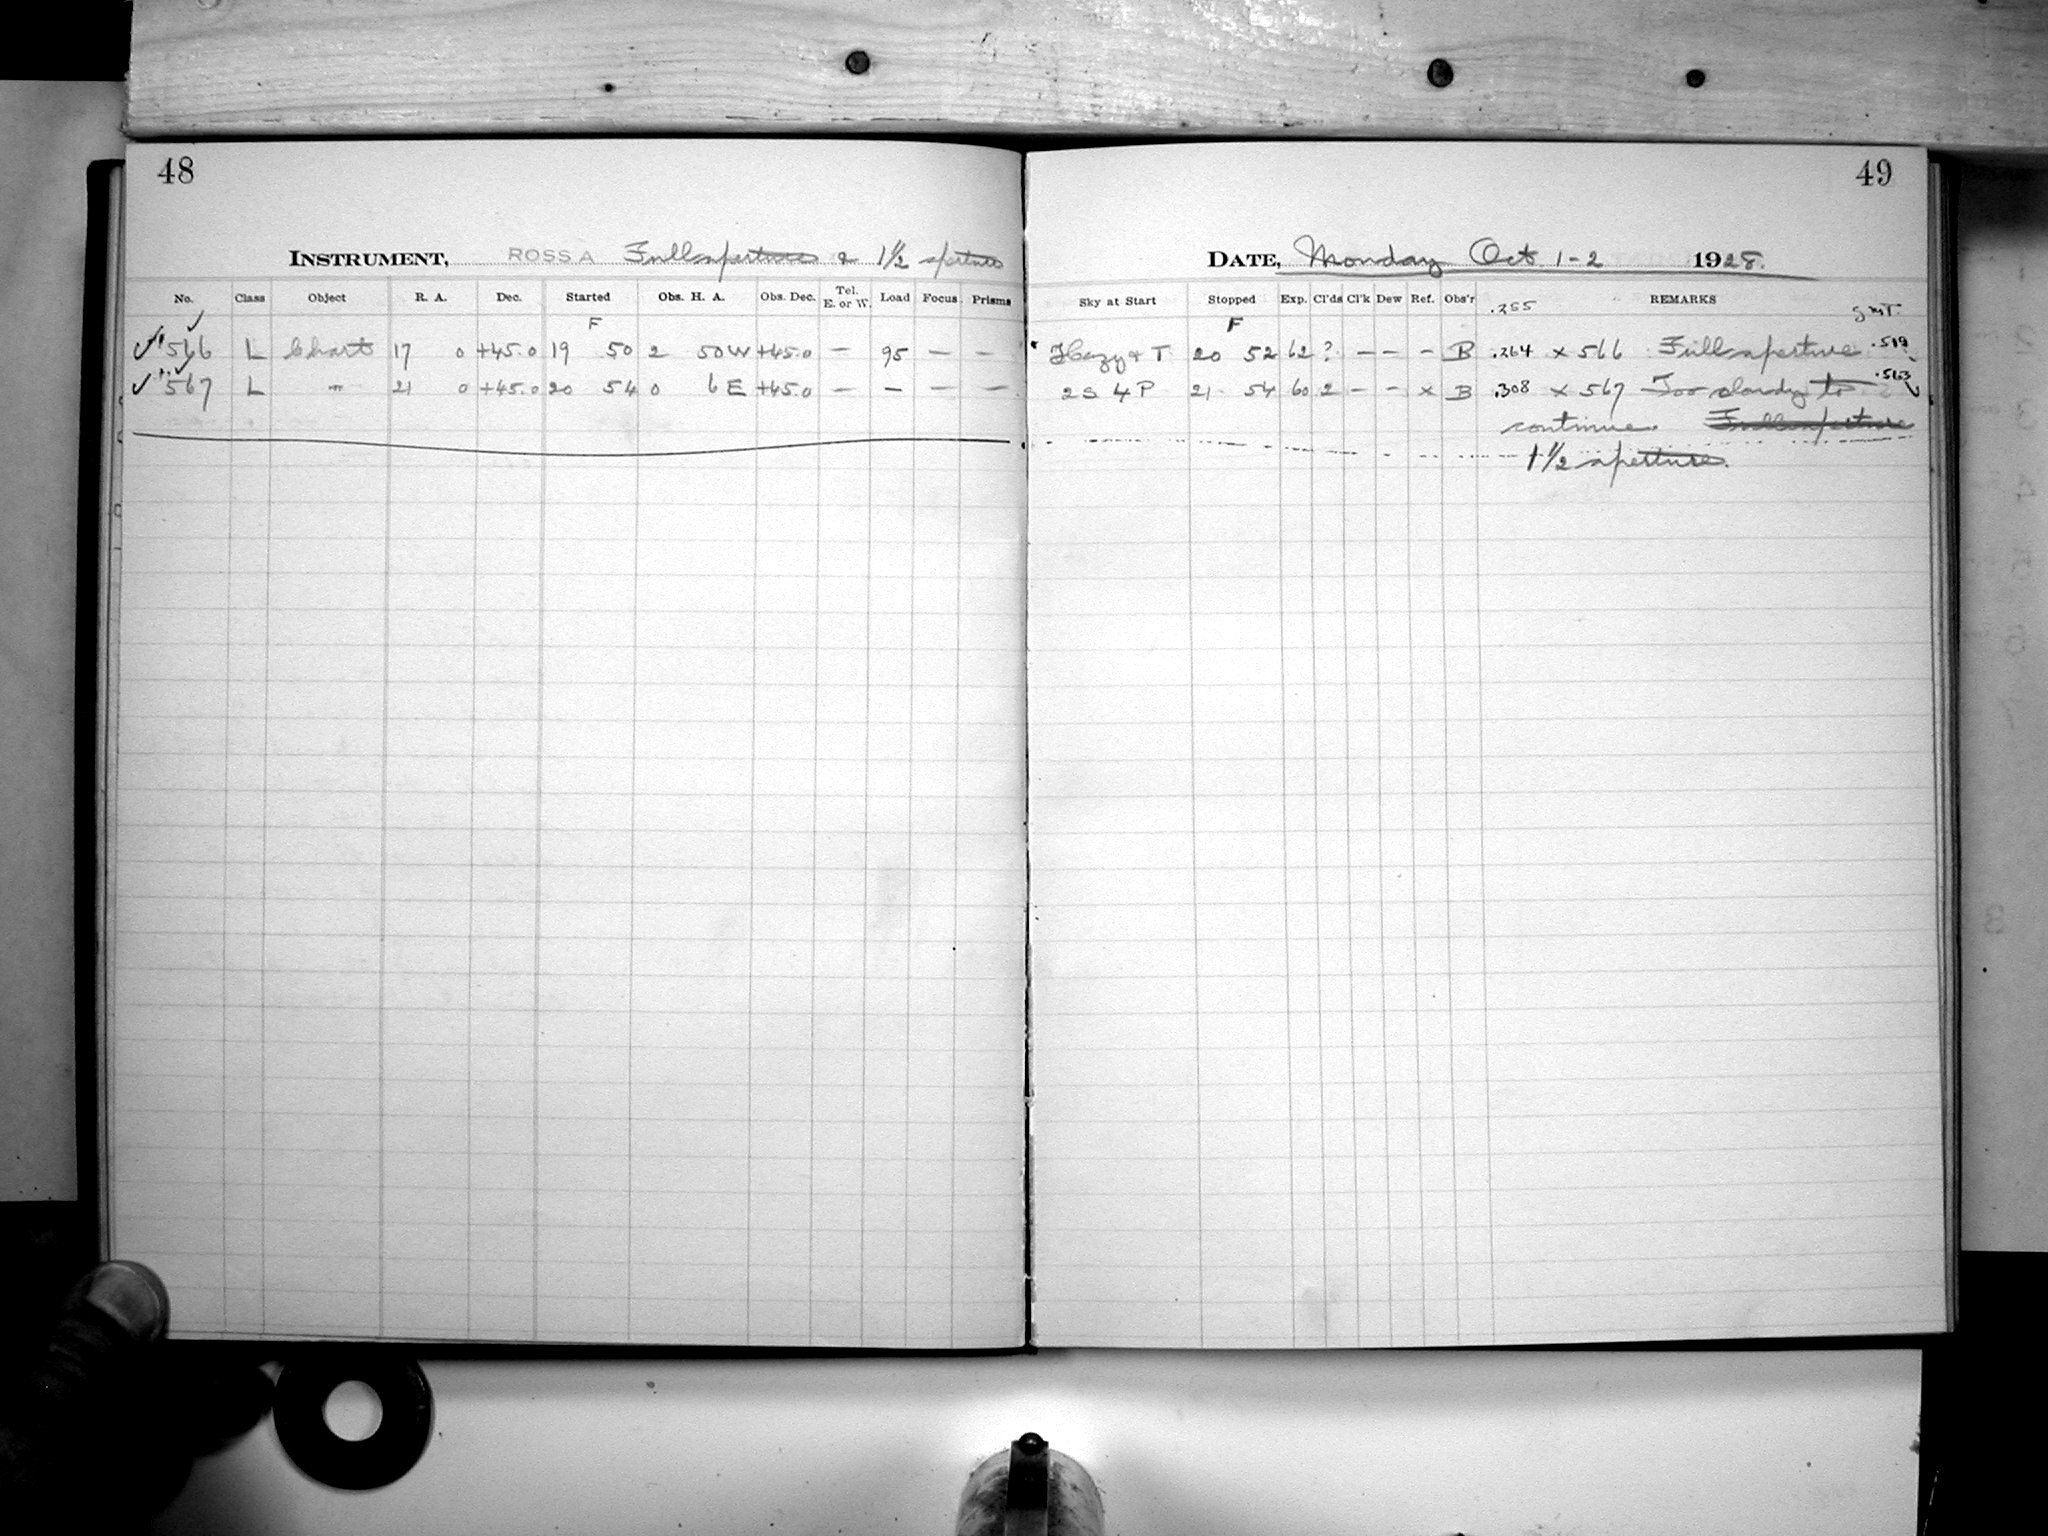 48
INSTRUMENT, ROSS A Full aperture & 1½ aperture
No. Class Object R. A. Dec. Started Obs. H. A. Obs. Dec. Tel. E. or W. Load Focus Prisms
F
566 L Chart 17 0 +45.0 19 50 2 50W +45.0 — 95 — —
567 L " 21 0 +45.0 20 54 0 6E +45.0 — — — —
49
DATE, Monday Oct 1-2 1928.
Sky at Start Stopped Exp. Cl'ds Cl'k Dew Ref. Obs'r .255 REMARKS G.M.T.
F
Hazy & T 20 52 62 ? — — - B .264 x 566 Full aperture .519
2 S 4 P 21 54 60 2 - - x B .308 x 567 Too cloudy to .563
continue. Full aperture
1½ aperture.